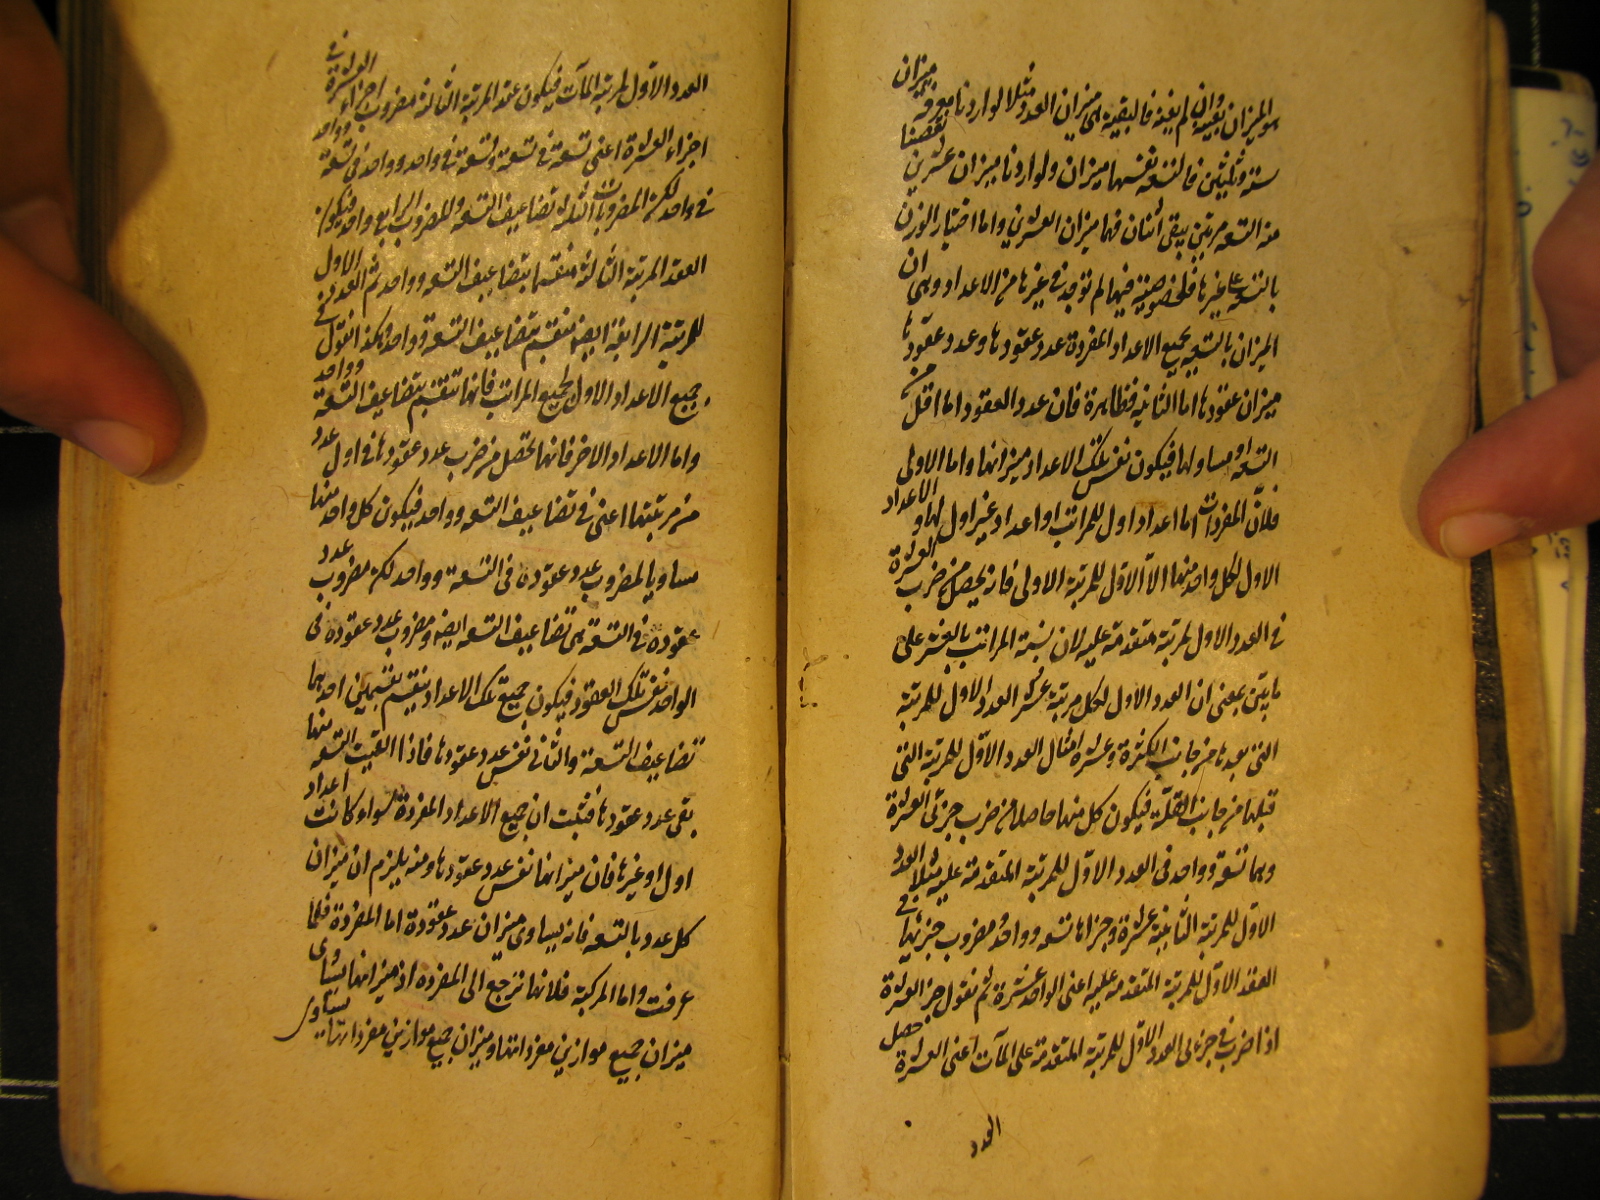 هو الميزان بعينه وان لم يفنه فالبقية هى ميزان العدد مثلا لو اردنا معرفة ميزان
ستة وثلثين فالتسعة نفسها ميزان ولو اردنا ميزان عشرين نقصنا
منه التسعة مرتين يبقى اثنان فهما ميزان العشرين واما اختيار الوزن
بالتسعة على غيرها فلخصوصية فيها لم توجد فى غيرها من الاعداد وهى ان
الميزان بالتسعة لجميع الاعداد المفردة عدد عقودها وعدد عقودها
ميزان عقودها اما الثانية فظاهرة فان عدد العقود اما اقل من
التسعة او مساو لها فيكون نفس تلك الاعداد ميزانها واما الاولى
فلان المفردات اما اعداد اول للمراتب او اعداد غير اول لها والاعداد
الاول لكل واحد منها الا الاول للمرتبة الاولى فانه يحصل من ضرب العشرة
فى العدد الاول لمرتبة متقدمة عليه لان نسبة المراتب بالعشر على
ما بين بمعنى ان العدد الاول لكل مرتبة عشر العدد الاول للمرتبة
التى بعدها من جانب الكثرة وعشرة امثال العدد الاول للمرتبة التى
قبلها من جانب القلة فيكون كل منها حاصلا من ضرب جزئى العشرة
وهما تسعة وواحد فى العدد الاول للمرتبة المتقدمة عليه مثلا العدد
الاول للمرتبة الثانية عشرة وجزاها تسعة وواحد مضروب جزئيها فى
العقد الاول للمرتبة المتقدمة عليه اعنى الواحد عشرة ثم نقول جزء العشرة
اذا ضرب فى جزئى العدد الاول للمرتبة المتقدمة على المآت اعنى العشرة حصل
العدد
العدد الاول لمرتبة المآت فيكون عند المرتبة الثالثة مضروب اجزاء العشرة فى
اجزاء العشرة اعنى تسعة فى تسعة وتسعة فى واحد وواحد فى تسعة وواحد
فى واحد لكن المضروبات الثلثة تضاعيف التسعة وللمضروب الرابع واحد فيكون
العقد المرتبة الثالثة منقسما بتضاعيف التسعة وواحد ثم العدد الاول
للمرتبة الرابعة ايضا منقسم بتضاعيف التسعة وواحد وهكذا نقول فى
جميع الاعداد الاول لجميع المراتب فانها تنقسم بتضاعيف التسعة وواحد
واما الاعداد الاخر فانها تحصل من ضرب عدد عقودها فى اول عدد
من مرتبتها اعنى فى تضاعيف التسعة وواحد فيكون كل واحد منها
مساويا لمضروب عدد عقوده فى التسعة وواحد لكن مضروب عدد
عقوده فى التسعة هى تضاعيف التسعة ايضا ومضروب عدد عقوده فى
الواحد نفس تلك العقود فيكون جميع تلك الاعداد ينقسم بقسمين احدهما
تضاعيف التسعة والثانى نفس عدد عقودها فاذا القيت التسعة منها
بقى عدد عقودها فثبت ان جميع الاعداد المفردة سواء كانت اعداد
اول او غيرها فان ميزانها نفس عدد عقودها ومنه يلزم ان ميزان
كل عدد بالتسعة فانه يساوى ميزان عدد عقوده اما المفردة فلما
عرفت واما المركبة فلانها ترجع الى المفرده اذ ميزانها يساوى
ميزان جميع موازين مفرداتها وميزان جميع موازين مفرداتها يساوى